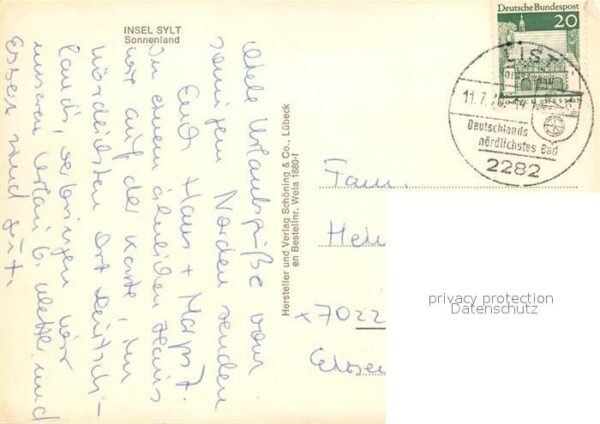 INSEL SYLT
Sonnenland
Viele Urlaubsgrüße vom
sonnigen Norden senden
Euch Hans + Margt.
In einem ähnlichen Haus
wie auf der Karte, im
nördlichsten Ort Deutsch-
lands, verbringen wir
unseren Urlaub. Wetter und
Essen sind gut.
Hersteller und Verlag Schöning & Co., Lübeck
en Bestellnr. Wela 1880-f
Deutsche Bundespost
20
LIST
11.7.
Deutschlands
nördlichstes Bad
2282
Fam.
7022
privacy protection
Datenschutz